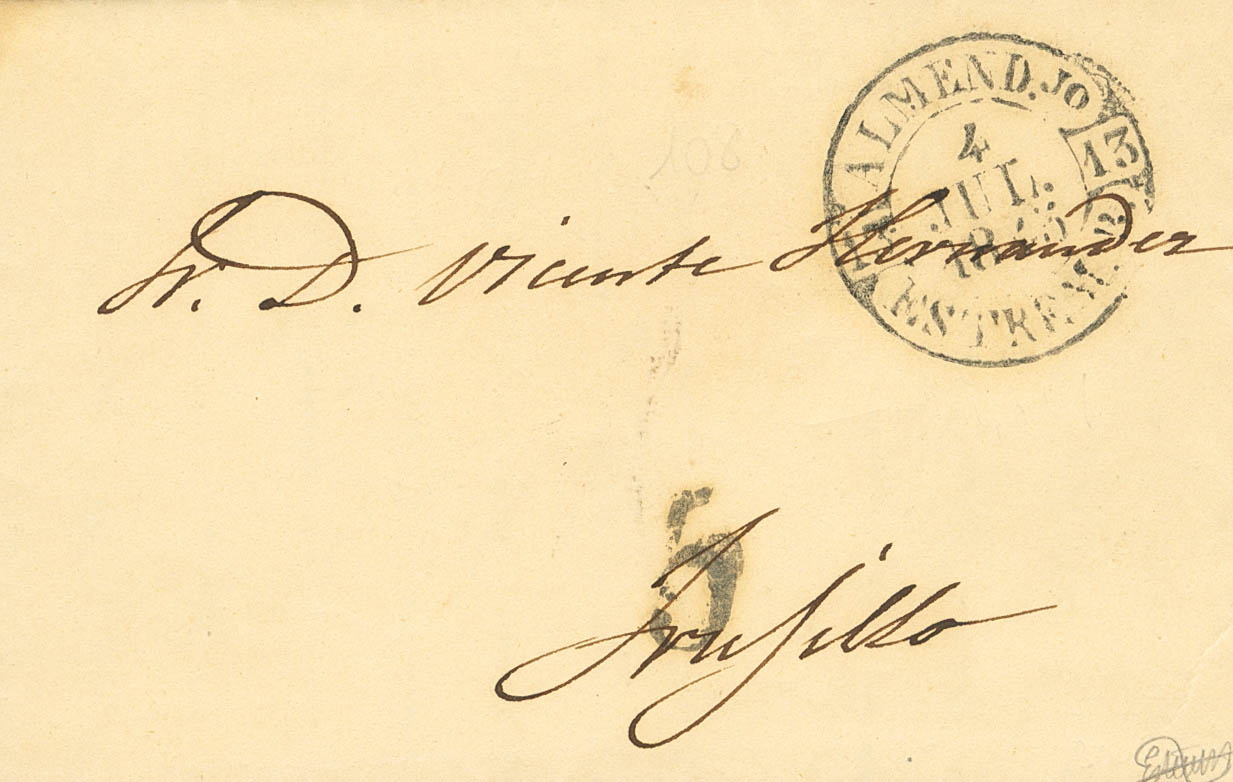 ALMENDJO
13
4
JUL.
ESTREM.
106
Sr. D. Vicente Hernandez
5
Trujillo